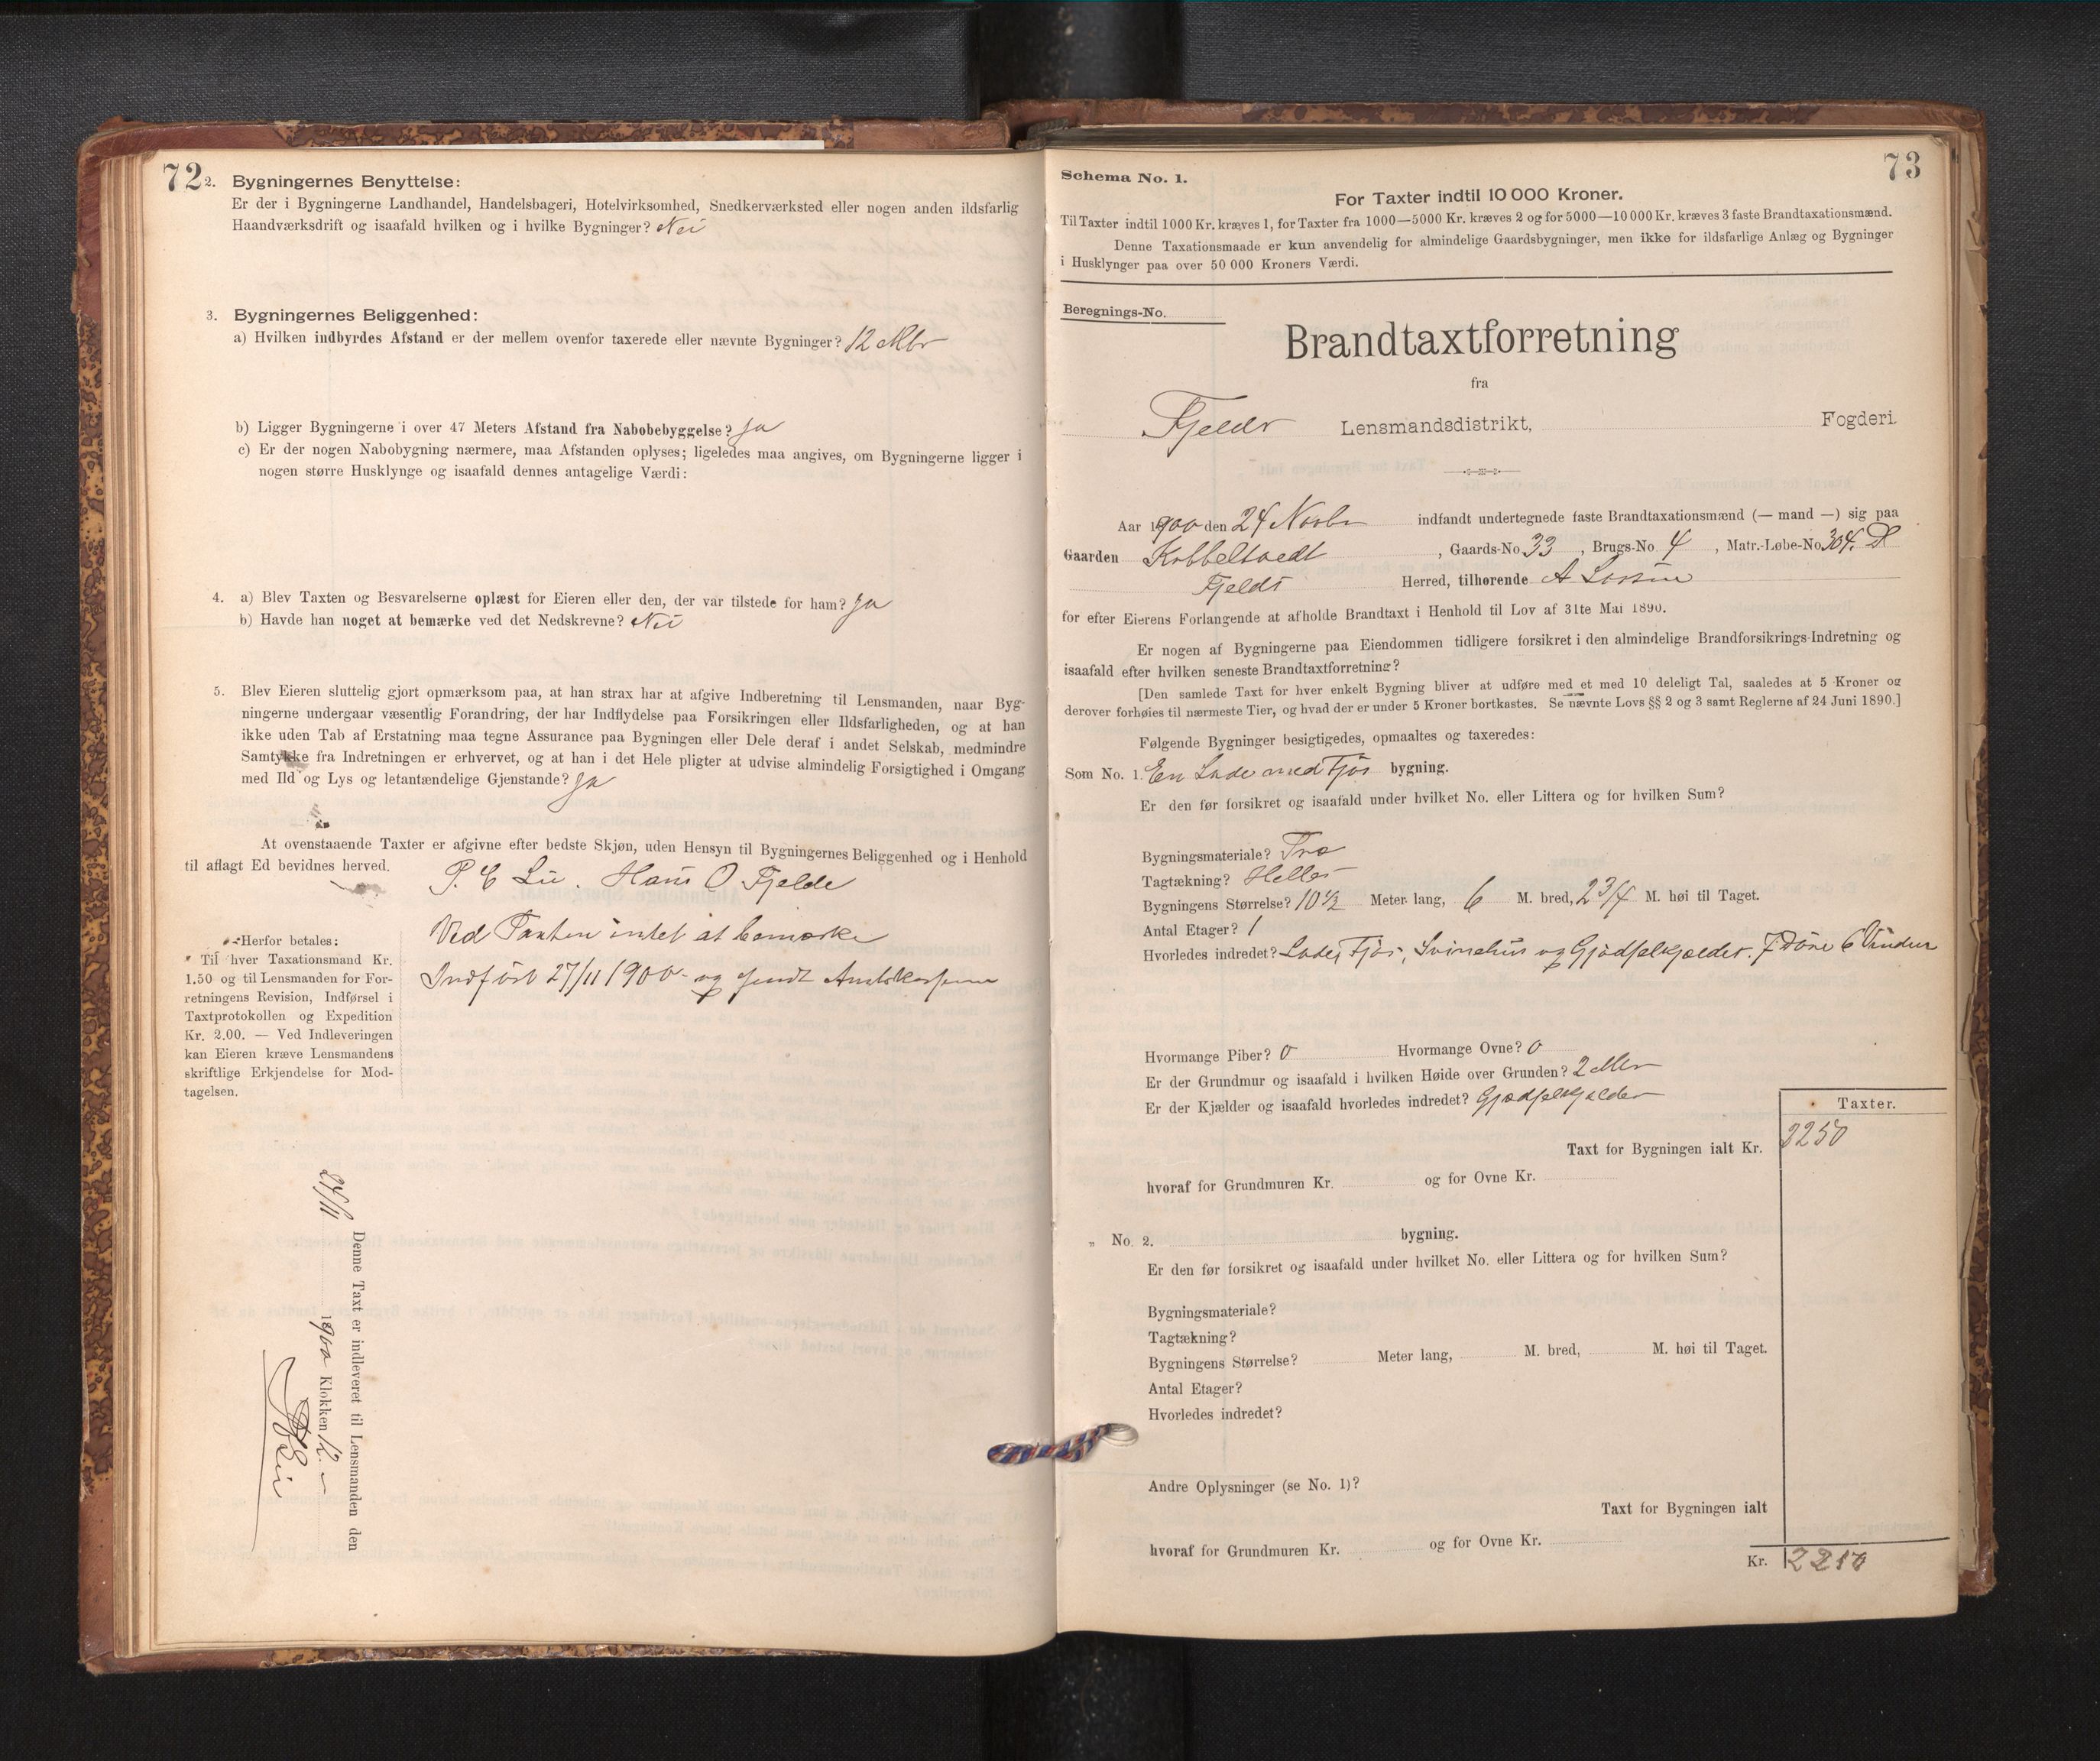 72
2. Bygningernes Benyttelse:
Er der i Bygningerne Landhandel, Handelsbageri, Hotelvirksomhed, Snedkerværksted eller nogen anden ildsfarlig
Haandværksdrift og isaafald hvilken og i hvilke Bygninger? Nei
3. Bygningernes Beliggenhed:
a) Hvilken indbyrdes Afstand er der mellem ovenfor taxerede eller nævnte Bygninger? 12 Mtr
b) Ligger Bygningerne i over 47 Meters Afstand fra Nabobebyggelse? Ja
c) Er der nogen Nabobygning nærmere, maa Afstanden oplyses; ligeledes maa angives, om Bygningerne ligger i
nogen større Husklynge og isaafald dennes antagelige Værdi:
4. a) Blev Taxten og Besvarelserne oplæst for Eieren eller den, der var tilstede for ham? Ja
b) Havde han noget at bemærke ved det Nedskrevne? Nei
5. Blev Eieren sluttelig gjort opmærksom paa, at han strax har at afgive Indberetning til Lensmanden, naar Byg-
ningerne undergaar væsentlig Forandring, der har Indflydelse paa Forsikringen eller Ildsfarligheden, og at han
ikke uden Tab af Erstatning maa tegne Assurance paa Bygningen eller Dele deraf i andet Selskab, medmindre
Samtykke fra Indretningen er erhvervet, og at han i det Hele pligter at udvise almindelig Forsigtighed i Omgang
med Ild og Lys og letantændelige Gjenstande? Ja
At ovenstaaende Taxter er afgivne efter bedste Skjøn, uden Hensyn til Bygningernes Beliggenhed og i Henhold
til aflagt Ed bevidnes herved.
P. E Lie. Hans O Fjelde
Ved Taxten intet at bemærke
Indført 27/11 1900 og sendt Amtskassen
Herfor betales:
Til hver Taxationsmand Kr.
1.50 og til Lensmanden for For-
retningens Revision, Indførsel i
Taxtprotokollen og Expedition
Kr. 2.00. — Ved Indleveringen
kan Eieren kræve Lensmandens
skriftlige Erkjendelse for Mod-
tagelsen.
Denne Taxt er indleveret til Lensmanden den
24/11 1900 Klokken 12
73
Schema No. 1.
For Taxter indtil 10 000 Kroner.
Til Taxter indtil 1000 Kr. kræves 1, for Taxter fra 1000—5000 Kr. kræves 2 og for 5000—10 000 Kr. kræves 3 faste Brandtaxationsmænd.
Denne Taxationsmaade er kun anvendelig for almindelige Gaardsbygninger, men ikke for ildsfarlige Anlæg og Bygninger
i Husklynger paa over 50 000 Kroners Værdi.
Beregnings-No.
Brandtaxtforretning
fra
Fjelds Lensmandsdistrikt, Fogderi.
Aar 1900 den 24 Novbr indfandt undertegnede faste Brandtaxationsmænd (— mand —) sig paa
Gaarden Kobbeltvedt , Gaards-No. 33 , Brugs-No. 4 , Matr.-Løbe-No. 304.
Fjelds Herred, tilhørende A Larsen
for efter Eierens Forlangende at afholde Brandtaxt i Henhold til Lov af 31te Mai 1890.
Er nogen af Bygningerne paa Eiendommen tidligere forsikret i den almindelige Brandforsikrings-Indretning og
isaafald efter hvilken seneste Brandtaxtforretning?
[Den samlede Taxt for hver enkelt Bygning bliver at udføre med et med 10 deleligt Tal, saaledes at 5 Kroner og
derover forhøies til nærmeste Tier, og hvad der er under 5 Kroner bortkastes. Se nævnte Lovs §§ 2 og 3 samt Reglerne af 24 Juni 1890.]
Følgende Bygninger besigtigedes, opmaaltes og taxeredes:
Som No. 1. En Lade med Fjøs bygning.
Er den før forsikret og isaafald under hvilket No. eller Littera og for hvilken Sum?
Bygningsmateriale? Træ
Tagtækning? Heller
Bygningens Størrelse? 10 1/2 Meter lang, 6 M. bred, 2 3/4 M. høi til Taget.
Antal Etager? 1
Hvorledes indredet? Lade, Fjøs, Svinehus og Gjødselkjelder. 7 Døre 6 Vinduer
Hvormange Piber? 0 Hvormange Ovne? 0
Er der Grundmur og isaafald i hvilken Høide over Grunden? 2 Mtr
Er der Kjælder og isaafald hvorledes indredet? Gjødselkjelder
Taxter.
Taxt for Bygningen ialt Kr. 2250
hvoraf for Grundmuren Kr. og for Ovne Kr.
„ No. 2. bygning.
Er den før forsikret og isaafald under hvilket No. eller Littera og for hvilken Sum?
Bygningsmateriale?
Tagtækning?
Bygningens Størrelse? Meter lang, M. bred, M. høi til Taget.
Antal Etager?
Hvorledes indredet?
Andre Oplysninger (se No. 1)?
Taxt for Bygningen ialt
hvoraf for Grundmuren Kr. og for Ovne Kr.
Kr. 2250